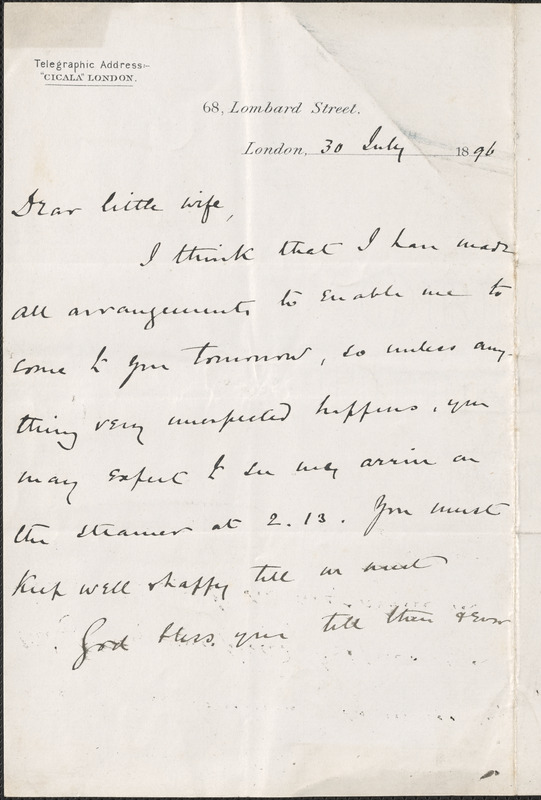 Telegraphic Address:-
"CICALA" LONDON.
68, Lombard Street.
London, 30 July 1896
Dear little wife,
I think that I have made
all arrangements to enable me to
come to you tomorrow, so unless any-
thing very unexpected happens, you
may expect to see my arrive on
the steamer at 2.13. You must
keep well & happy till we meet
God bless you till then & ever